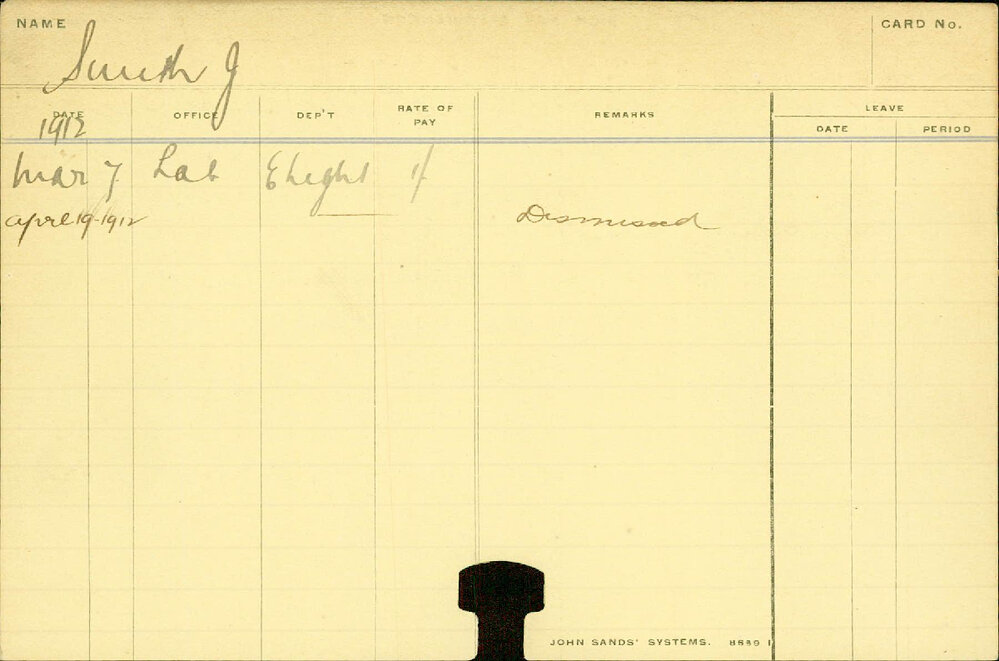 NAME
CARD No.
Smith J
DATE OFFICE DEP'T RATE OF PAY REMARKS LEAVE
DATE PERIOD
1912
Mar 7 Lab E Light 1/
April 19-1912 Dismissed
JOHN SANDS' SYSTEMS. 8639